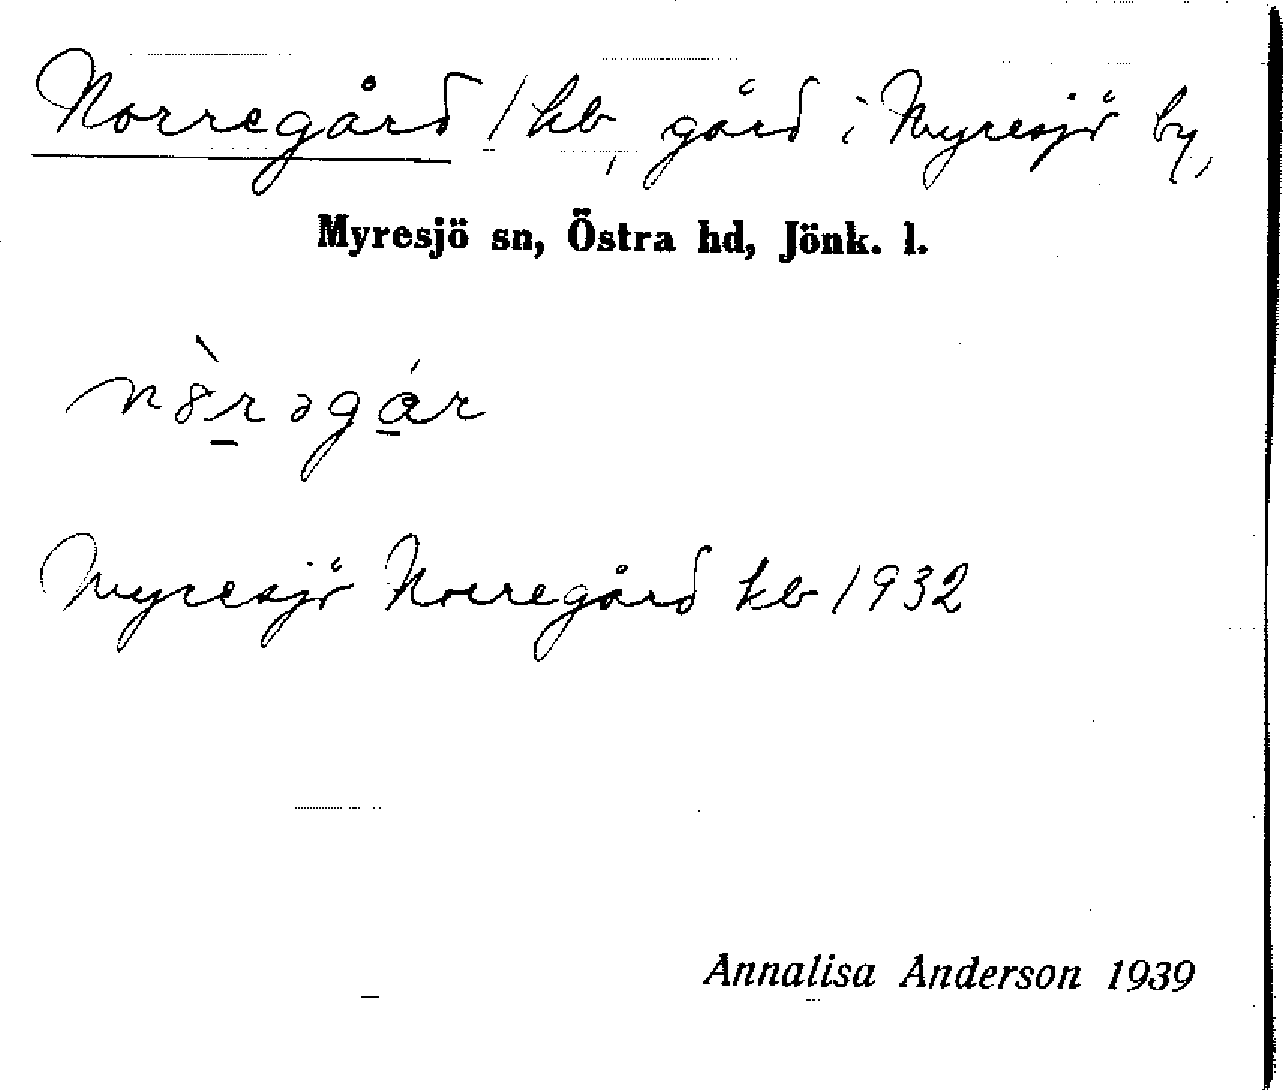 Norregård /kb, gård i Myresjö by,
Myresjö sn, Östra hd, Jönk. l.
n8̀r̲əgá̲r
Myresjö Norregård kb 1932
Annalisa Anderson 1939